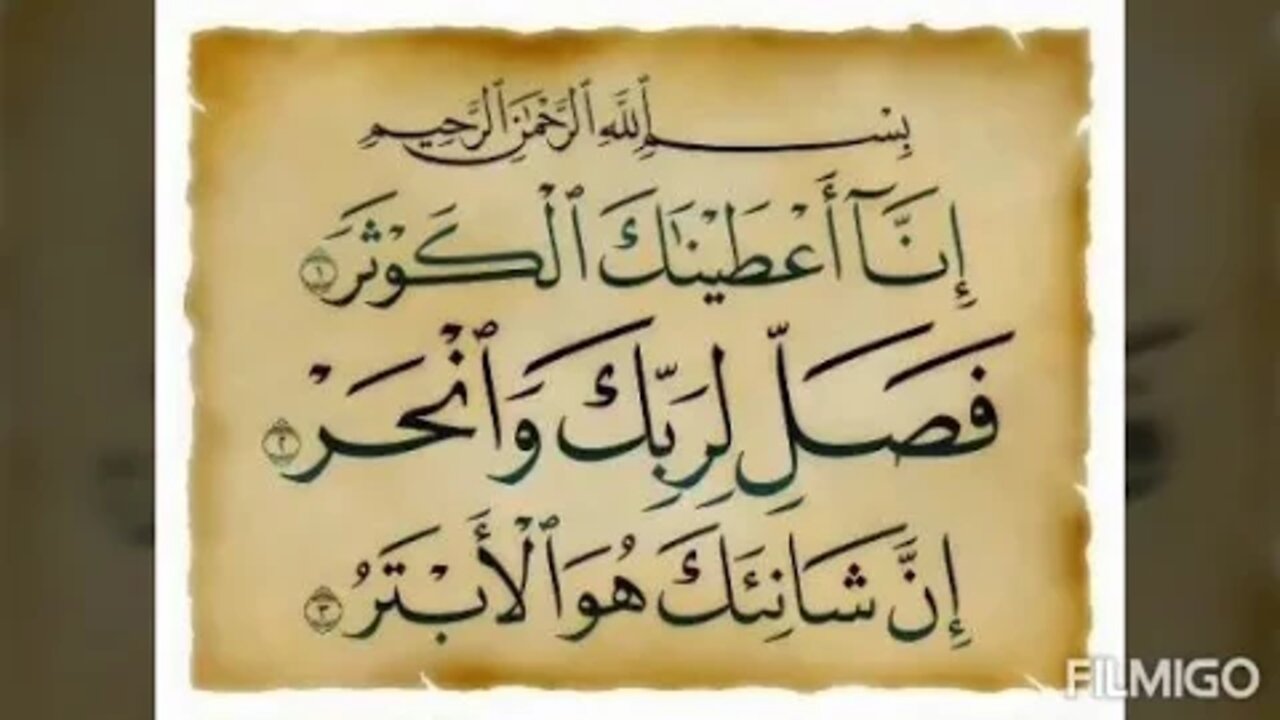 بِسْمِ ٱللَّهِ ٱلرَّحْمَٰنِ ٱلرَّحِيمِ
إِنَّآ أَعْطَيْنَٰكَ ٱلْكَوْثَرَ ١
فَصَلِّ لِرَبِّكَ وَٱنْحَرْ ٢
إِنَّ شَانِئَكَ هُوَ ٱلْأَبْتَرُ ٣
FILMIGO